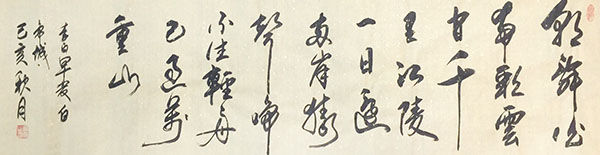 朝辭白
帝彩雲
間千
里江陵
一日還
兩岸猿
聲啼
不住輕舟
已過萬
重山
李白早發白
帝城
己亥秋月